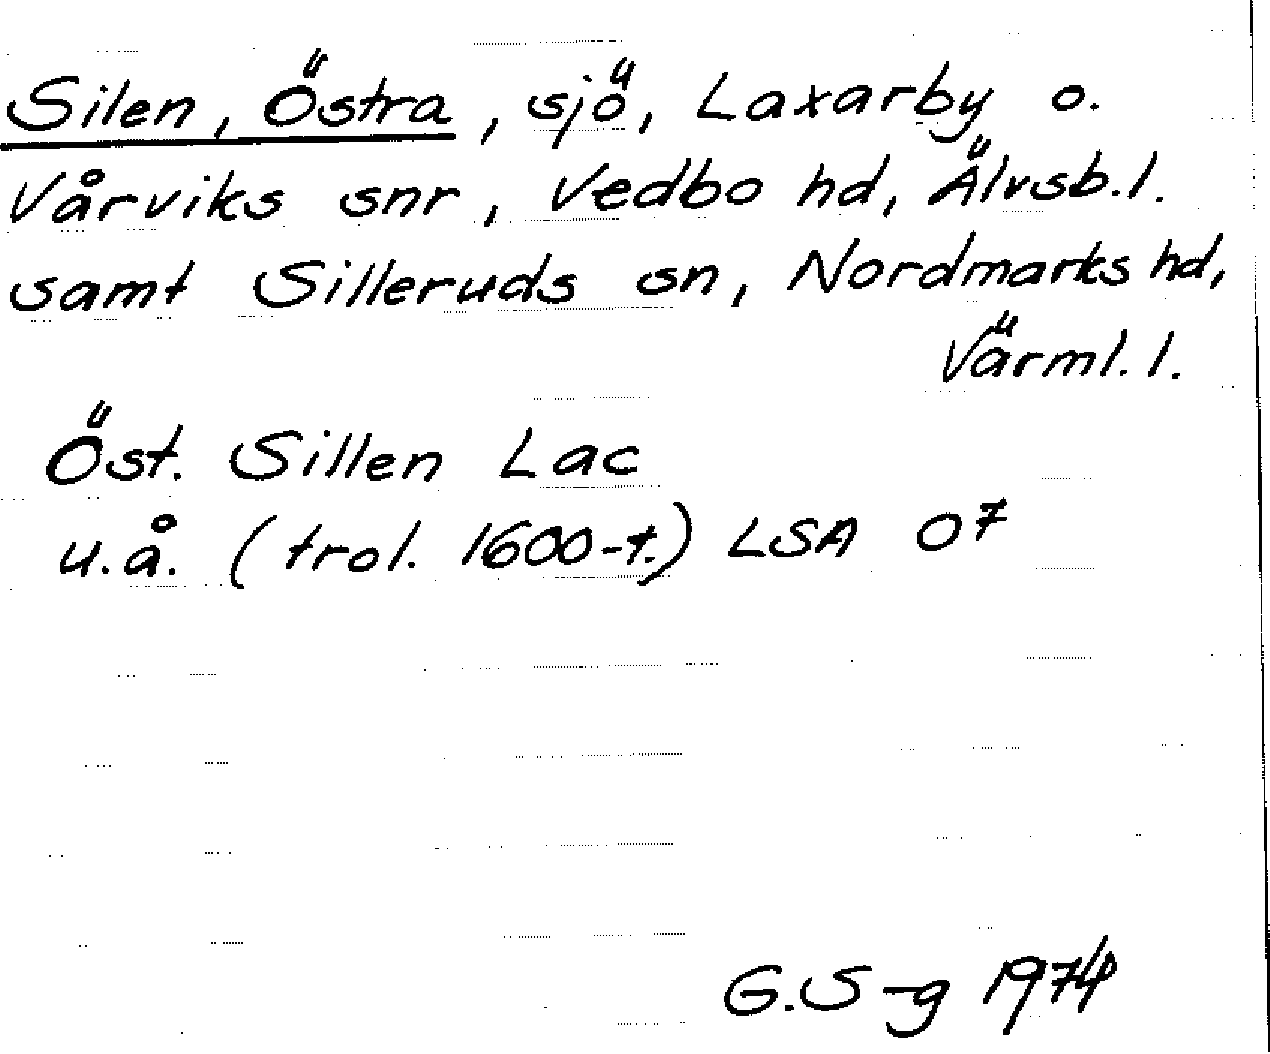 Silen, Östra, sjö, Laxarby o.
Vårviks snr, Vedbo hd, Älvsb.l.
samt Silleruds sn, Nordmarks hd,
Värml. l.
Öst. Sillen Lac
u.å. (trol. 1600-t.) LSA O⁷
G.S-g 1974